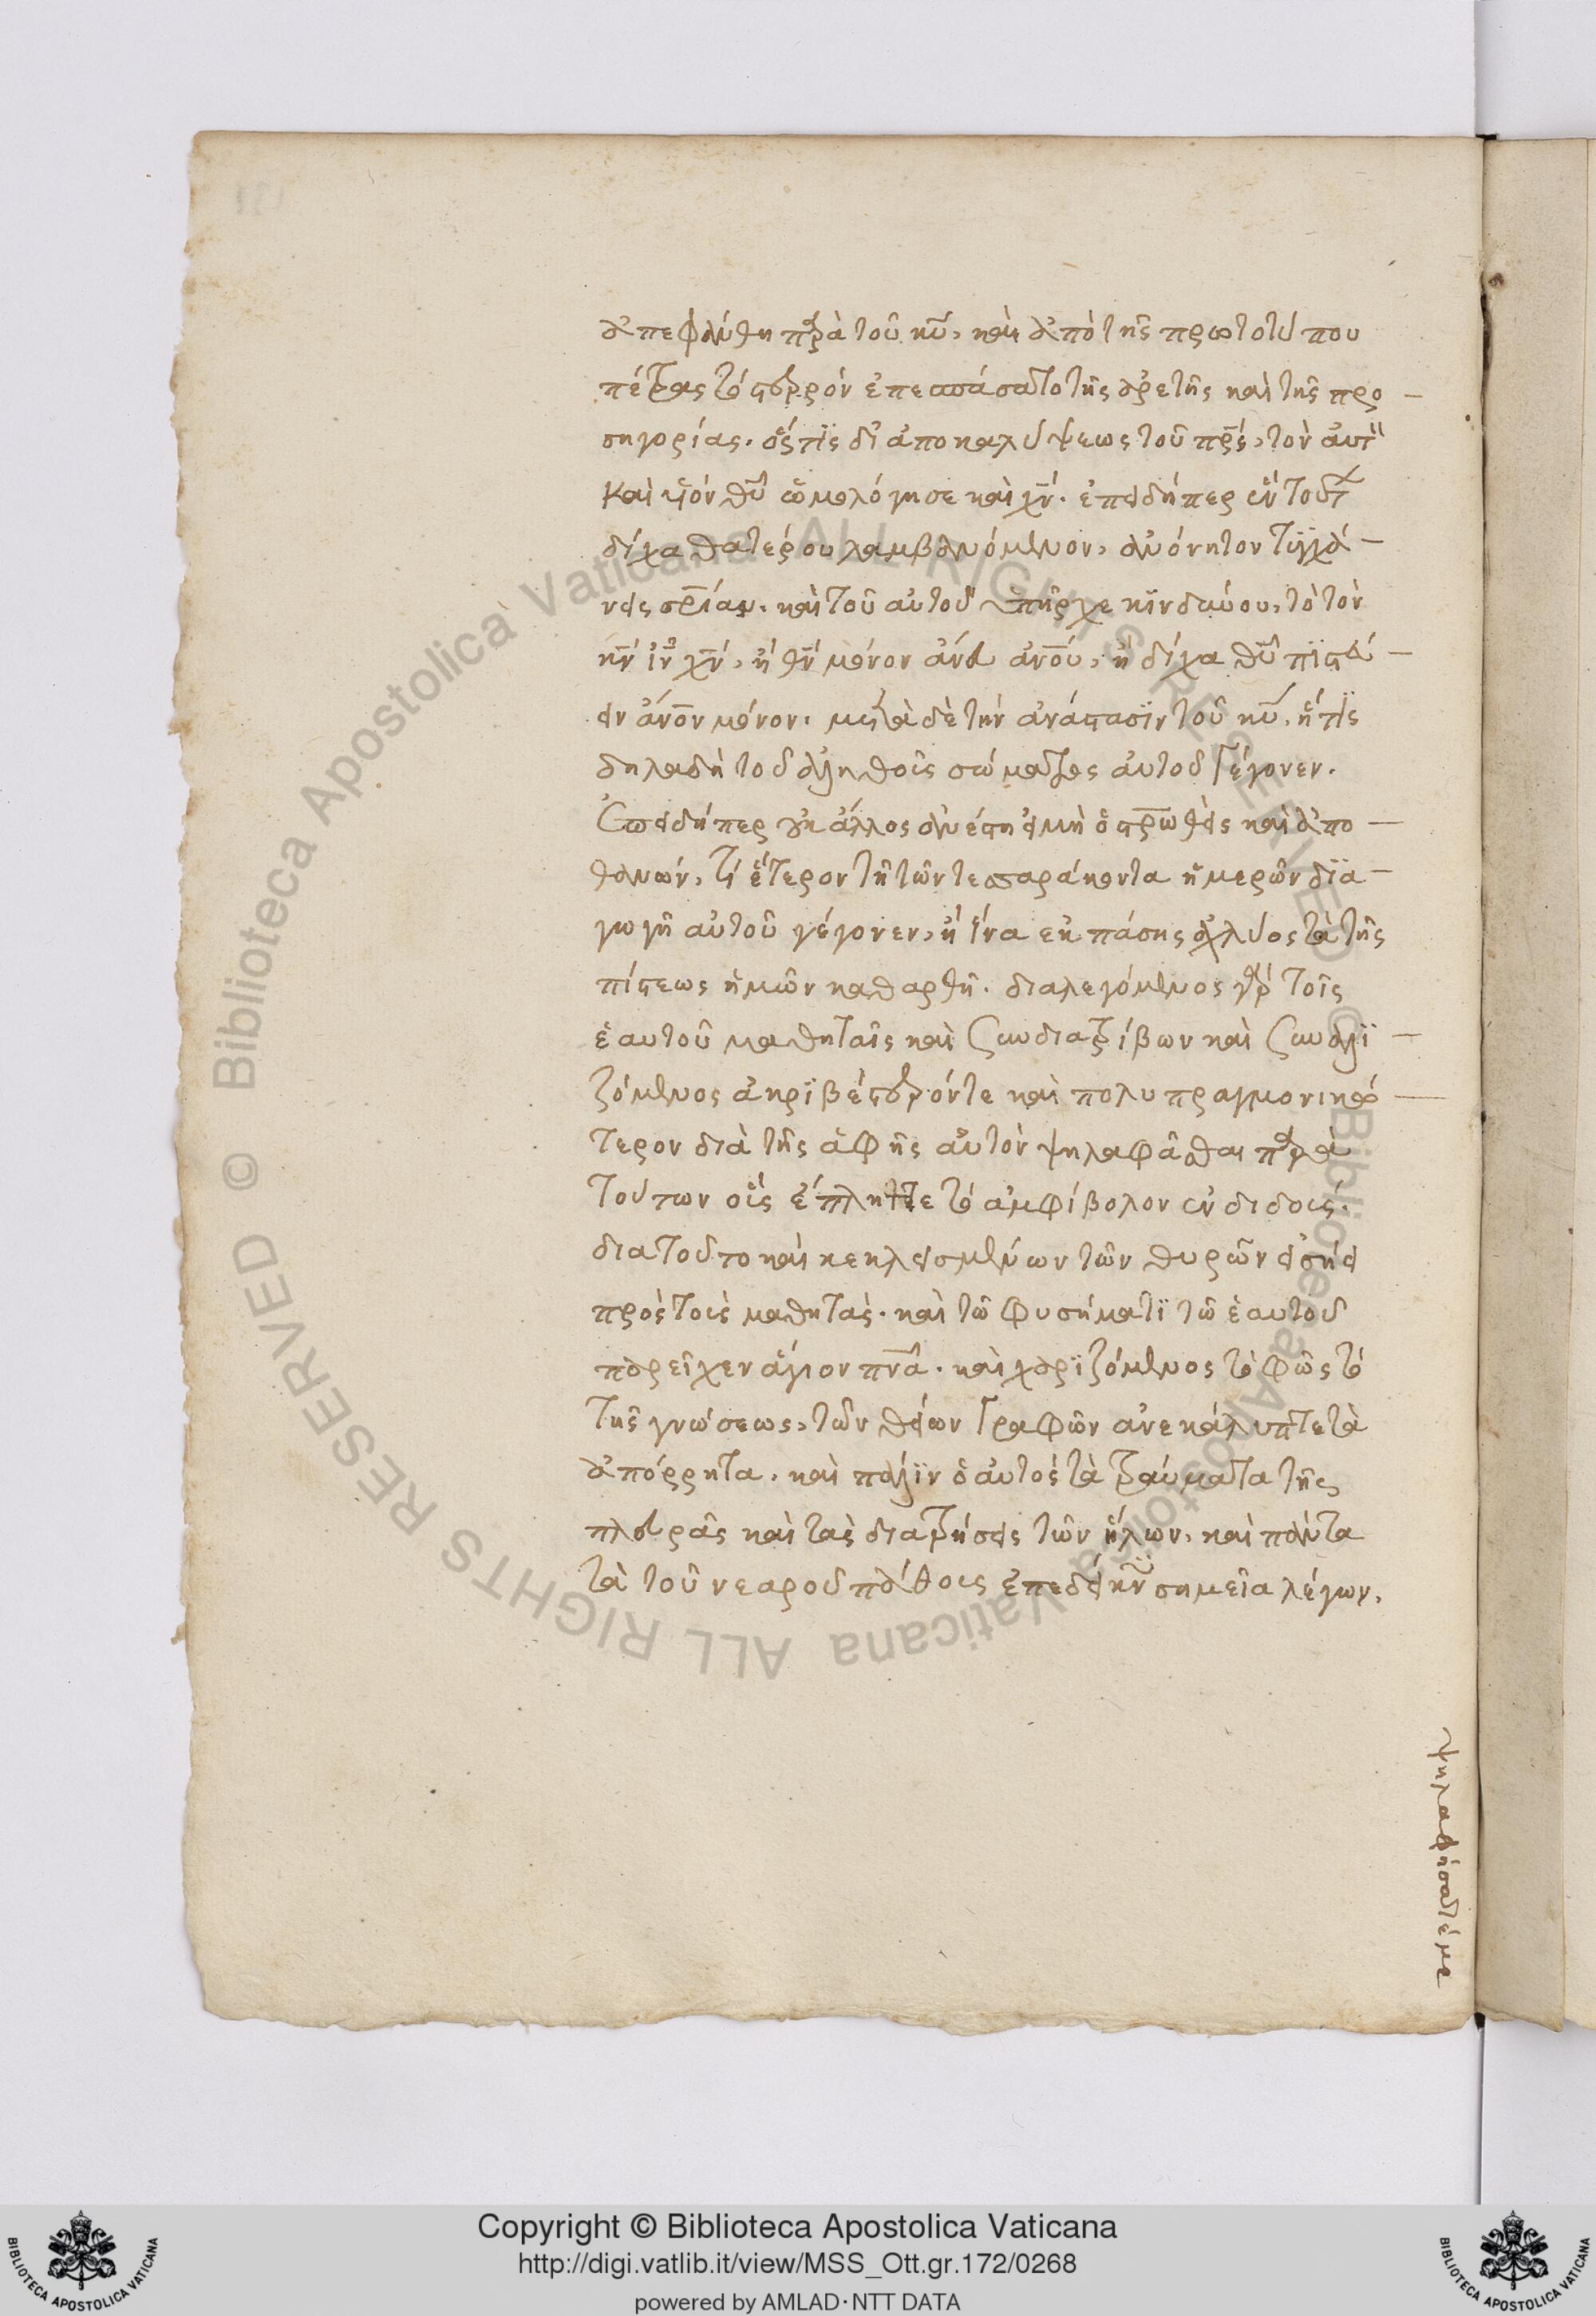 ἀπεφάνθη παρὰ τοῦ κυ̅, καὶ ἀπὸ τῆς πρωτοτύπου
πέτρας τὸ στερρὸν ἐπεσπάσατο τῆς ἀρετῆς καὶ τῆς προ
σηγορίας. ὅστις δι' ἀποκαλύψεως τοῦ πρ̅ς, τὸν αὐτὸν
καὶ υἱὸν θυ̅ ὡμολόγησε καὶ χν̅. ἐπειδήπερ ἓν τούτων
δίχα θατέρου λαμβανόμενον, ἀνόνητον τυγχά
νει σρ̅ίαν. καὶ τοῦ αὐτοῦ ὑπῆρχε κινδύνου, τὸ τὸν
κν̅ ιν̅ χν̅, ἢ θν̅ μόνον ἄνευ ἀνο̅υ, ἢ δίχα θυ̅ πιστεύ
ειν ἄνο̅ν μόνον. μετὰ δὲ τὴν ἀνάστασιν τοῦ κυ̅, ἥτις
δηλαδὴ τοῦ ἀληθοῦς σώματος αὐτοῦ γέγονεν.
Ἐπειδήπερ οὐκ ἄλλος ἀνέστη εἰ μὴ ὁ στρ̅ωθεὶς καὶ ἀπο
θανών, τί ἕτερον τῇ τῶν τεσσαράκοντα ἡμερῶν δια
γωγῇ αὐτοῦ γέγονεν, ἢ ἵνα ἐκ πάσης ἀχλύος τὰ τῆς
πίστεως ἡμῶν καθαρθῇ. διαλεγόμενος γὰρ τοῖς
ἑαυτοῦ μαθηταῖς καὶ συνδιατρίβων καὶ συναλι
ζόμενος ἀκριβέστερόν τε καὶ πολυπραγμονικώ
τερον διὰ τῆς ἁφῆς αὐτὸν ψηλαφᾶσθαι παρὰ
τούτων οἷς ἔπληττε τὸ ἀμφίβολον ἐνδιδούς.
διατοῦτο καὶ κεκλεισμένων τῶν θυρῶν εἰσήει
πρὸς τοὺς μαθητάς. καὶ τῷ φυσήματι τῷ ἑαυτοῦ
παρεῖχεν ἅγιον πν̅α. καὶ χαριζόμενος τὸ φῶς τὸ
τῆς γνώσεως, τῶν θείων γραφῶν ἀνεκάλυπτε τὰ
ἀπόρρητα. καὶ πάλιν ὁ αὐτὸς τὰ τραύματα τῆς
πλευρᾶς καὶ τὰς διατρήσεις τῶν ἥλων, καὶ πάντα
τὰ τοῦ νεαροῦ πάθους ἐπεδείκνυ σημεῖα λέγων,
ψηλαφήσατέ με
Copyright © Biblioteca Apostolica Vaticana
http://digi.vatlib.it/view/MSS_Ott.gr.172/0268
powered by AMLAD·NTT DATA
BIBLIOTECA APOSTOLICA VATICANA
BIBLIOTECA APOSTOLICA VATICANA
© Biblioteca Apostolica Vaticana ALL RIGHTS RESERVED © Biblioteca Apostolica Vaticana ALL RIGHTS RESERVED